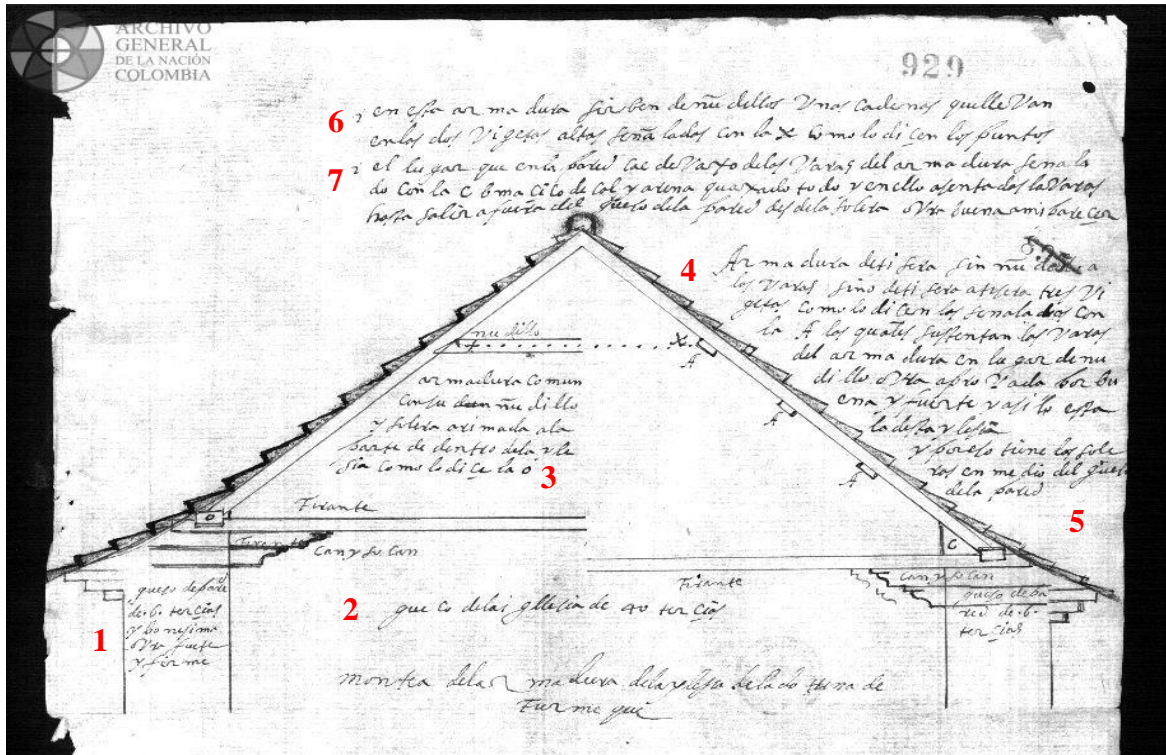 ARCHIVO
GENERAL
DE LA NACIÓN
COLOMBIA
929
6
en esta armadura sirben de nudillos Unas cadenas que lleVan
en los dos Vigetas altas señaladas con la X como lo dicen los puntos
7
el lugar que en la pared cae deVaxo de las Varas del armadura senala
do con la C macico de cal y arena quaxado todo y en ello asentados las Varas
hasta salir a fuera del gueso de la pared desde la solera oVra buena a mi parecer
4
Armadura de tisera sin nudillo a
los Varas sino de tisera a tisera tres Vi
getas como lo dicen las senaladas con
la A las quales sustentan las Varas
del armadura en lugar de nu
dillo oVra aproVada por bu
ena y fuerte y asi lo esta
la desta yglesia
y por esto tiene las sole
ras en medio del gueso
de la pared
nudillo
X
A
A
A
armadura comun
con su nudillo
y solera arimada a la
parte de dentro de la yle
sia como lo dice la o
3
5
o
Tirante
Tirante
can y so can
C
can y so can
Tirante
1
gueso de pare
de 6 tercias
y bonisima
oVra fuerte
y firme
2
gueco de la yglesia de 40 tercias
gueso de pa
red de 6
tercias
montea de la armadura de la yglesia de la dotrina de
Turmequé